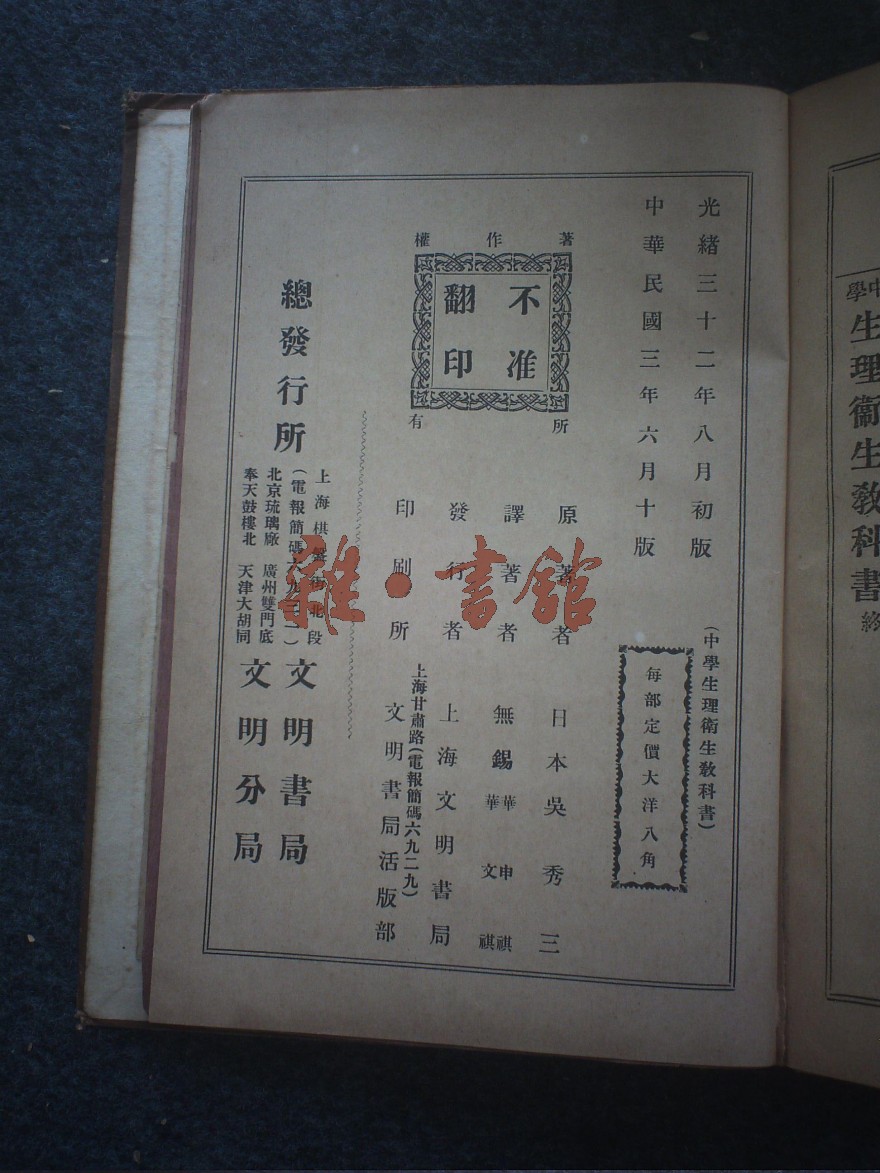 光緒三十二年八月初版
中華民國三年六月十版
(中學生理衛生教科書)
每部定價大洋八角
著作權
所有
不准
翻印
原著者 日本吳秀三
譯著者 無錫 華申祺 華文祺
發行者 上海文明書局
上海甘肅路(電報簡碼六九二九)
印刷所 文明書局活版部
總發行所
上海棋盤街北段
(電報簡碼六九三一) 文明書局
北京琉璃廠 廣州雙門底
奉天鼓樓北 天津大胡同
文明分局
中學生理衞生教科書終
雜·書館